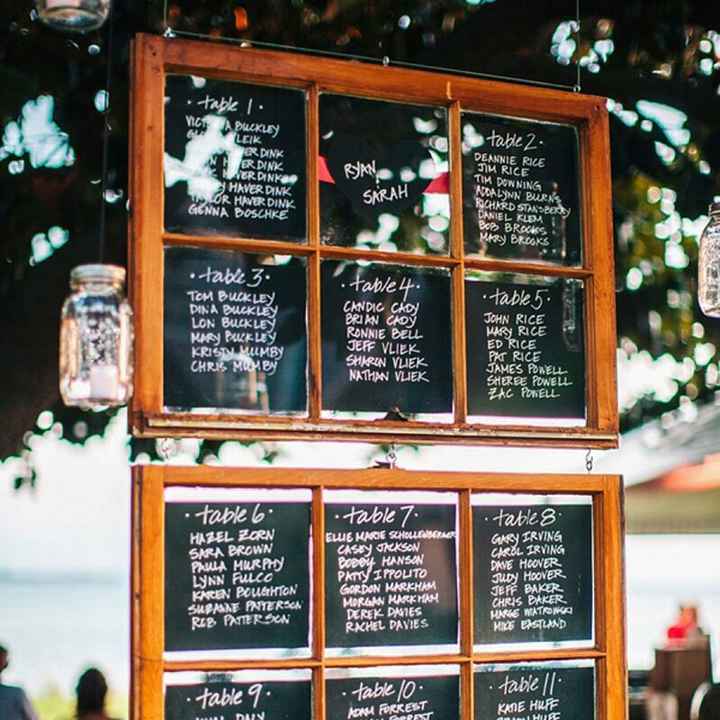 ·table 1·
BUCKLEY
HAVERDINK
HAVERDINK
HAVERDINK
TAYLOR HAVERDINK
GENNA BOSCHKE
RYAN
SARAH
·table 2·
DEANNIE RICE
JIM RICE
TIM DOWNING
ADDALYNN BURNS
RICHARD STANSBERRY
DANIEL KLEM
BOB BROOKS
MARY BROOKS
·table 3·
TOM BUCKLEY
DINA BUCKLEY
LON BUCKLEY
MARY BUCKLEY
KRISTY MUMBY
CHRIS MUMBY
·table 4·
CANDIC CADY
BRIAN CADY
RONNIE BELL
JEFF VLIEK
SHARON VLIEK
NATHAN VLIEK
·table 5·
JOHN RICE
MARY RICE
ED RICE
PAT RICE
JAMES POWELL
SHEREE POWELL
ZAC POWELL
·table 6·
HAZEL ZORN
SARA BROWN
PAULA MURPHY
LYNN FULCO
KAREN BOUGHTON
SUZANNE PATTERSON
ROB PATTERSON
·table 7·
ELLIE MARIE SCHOLLENBERGER
CASEY JACKSON
BOBBY HANSON
PATTY IPPOLITO
GORDON MARKHAM
MORGAN MARKHAM
DEREK DAVIES
RACHEL DAVIES
·table 8·
GARY IRVING
CAROL IRVING
DAVE HOOVER
JUDY HOOVER
JEFF BAKER
CHRIS BAKER
MARGE WIATROWSKI
MIKE EASTLAND
·table 9·
DALY
·table 10·
ADAM FORREST
FORREST
·table 11·
KATIE HUFF
HUFF